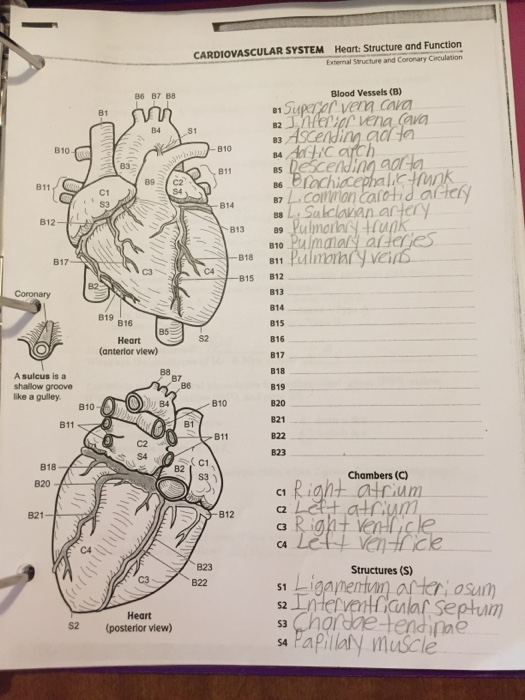 CARDIOVASCULAR SYSTEM Heart: Structure and Function
External Structure and Coronary Circulation
B6 B7 B8
B1
B4
S1
B10
B10
B3
B11
B9
C2
S4
B11
C1
S3
B14
B12
B13
B17
B18
C3
C4
B15
B2
B19
B16
B5
S2
Heart
(anterior view)
Coronary
A sulcus is a
shallow groove
like a gulley.
B8
B7
B6
B10
B4
B10
B11
B1
B11
C2
S4
B18
B2
C1
S3
B20
B21
B12
C4
B23
C3
B22
S2
Heart
(posterior view)
Blood Vessels (B)
B1 Superior vena cava
B2 Inferior vena cava
B3 Ascending aorta
B4 Aortic arch
B5 Descending aorta
B6 Brachiocephalic trunk
B7 L. common carotid artery
B8 L. Subclavian artery
B9 Pulmonary trunk
B10 Pulmonary arteries
B11 Pulmonary veins
B12
B13
B14
B15
B16
B17
B18
B19
B20
B21
B22
B23
Chambers (C)
C1 Right atrium
C2 Left atrium
C3 Right ventricle
C4 Left ventricle
Structures (S)
S1 Ligamentum arteriosum
S2 Interventricular septum
S3 Chordae tendinae
S4 Papillary muscle